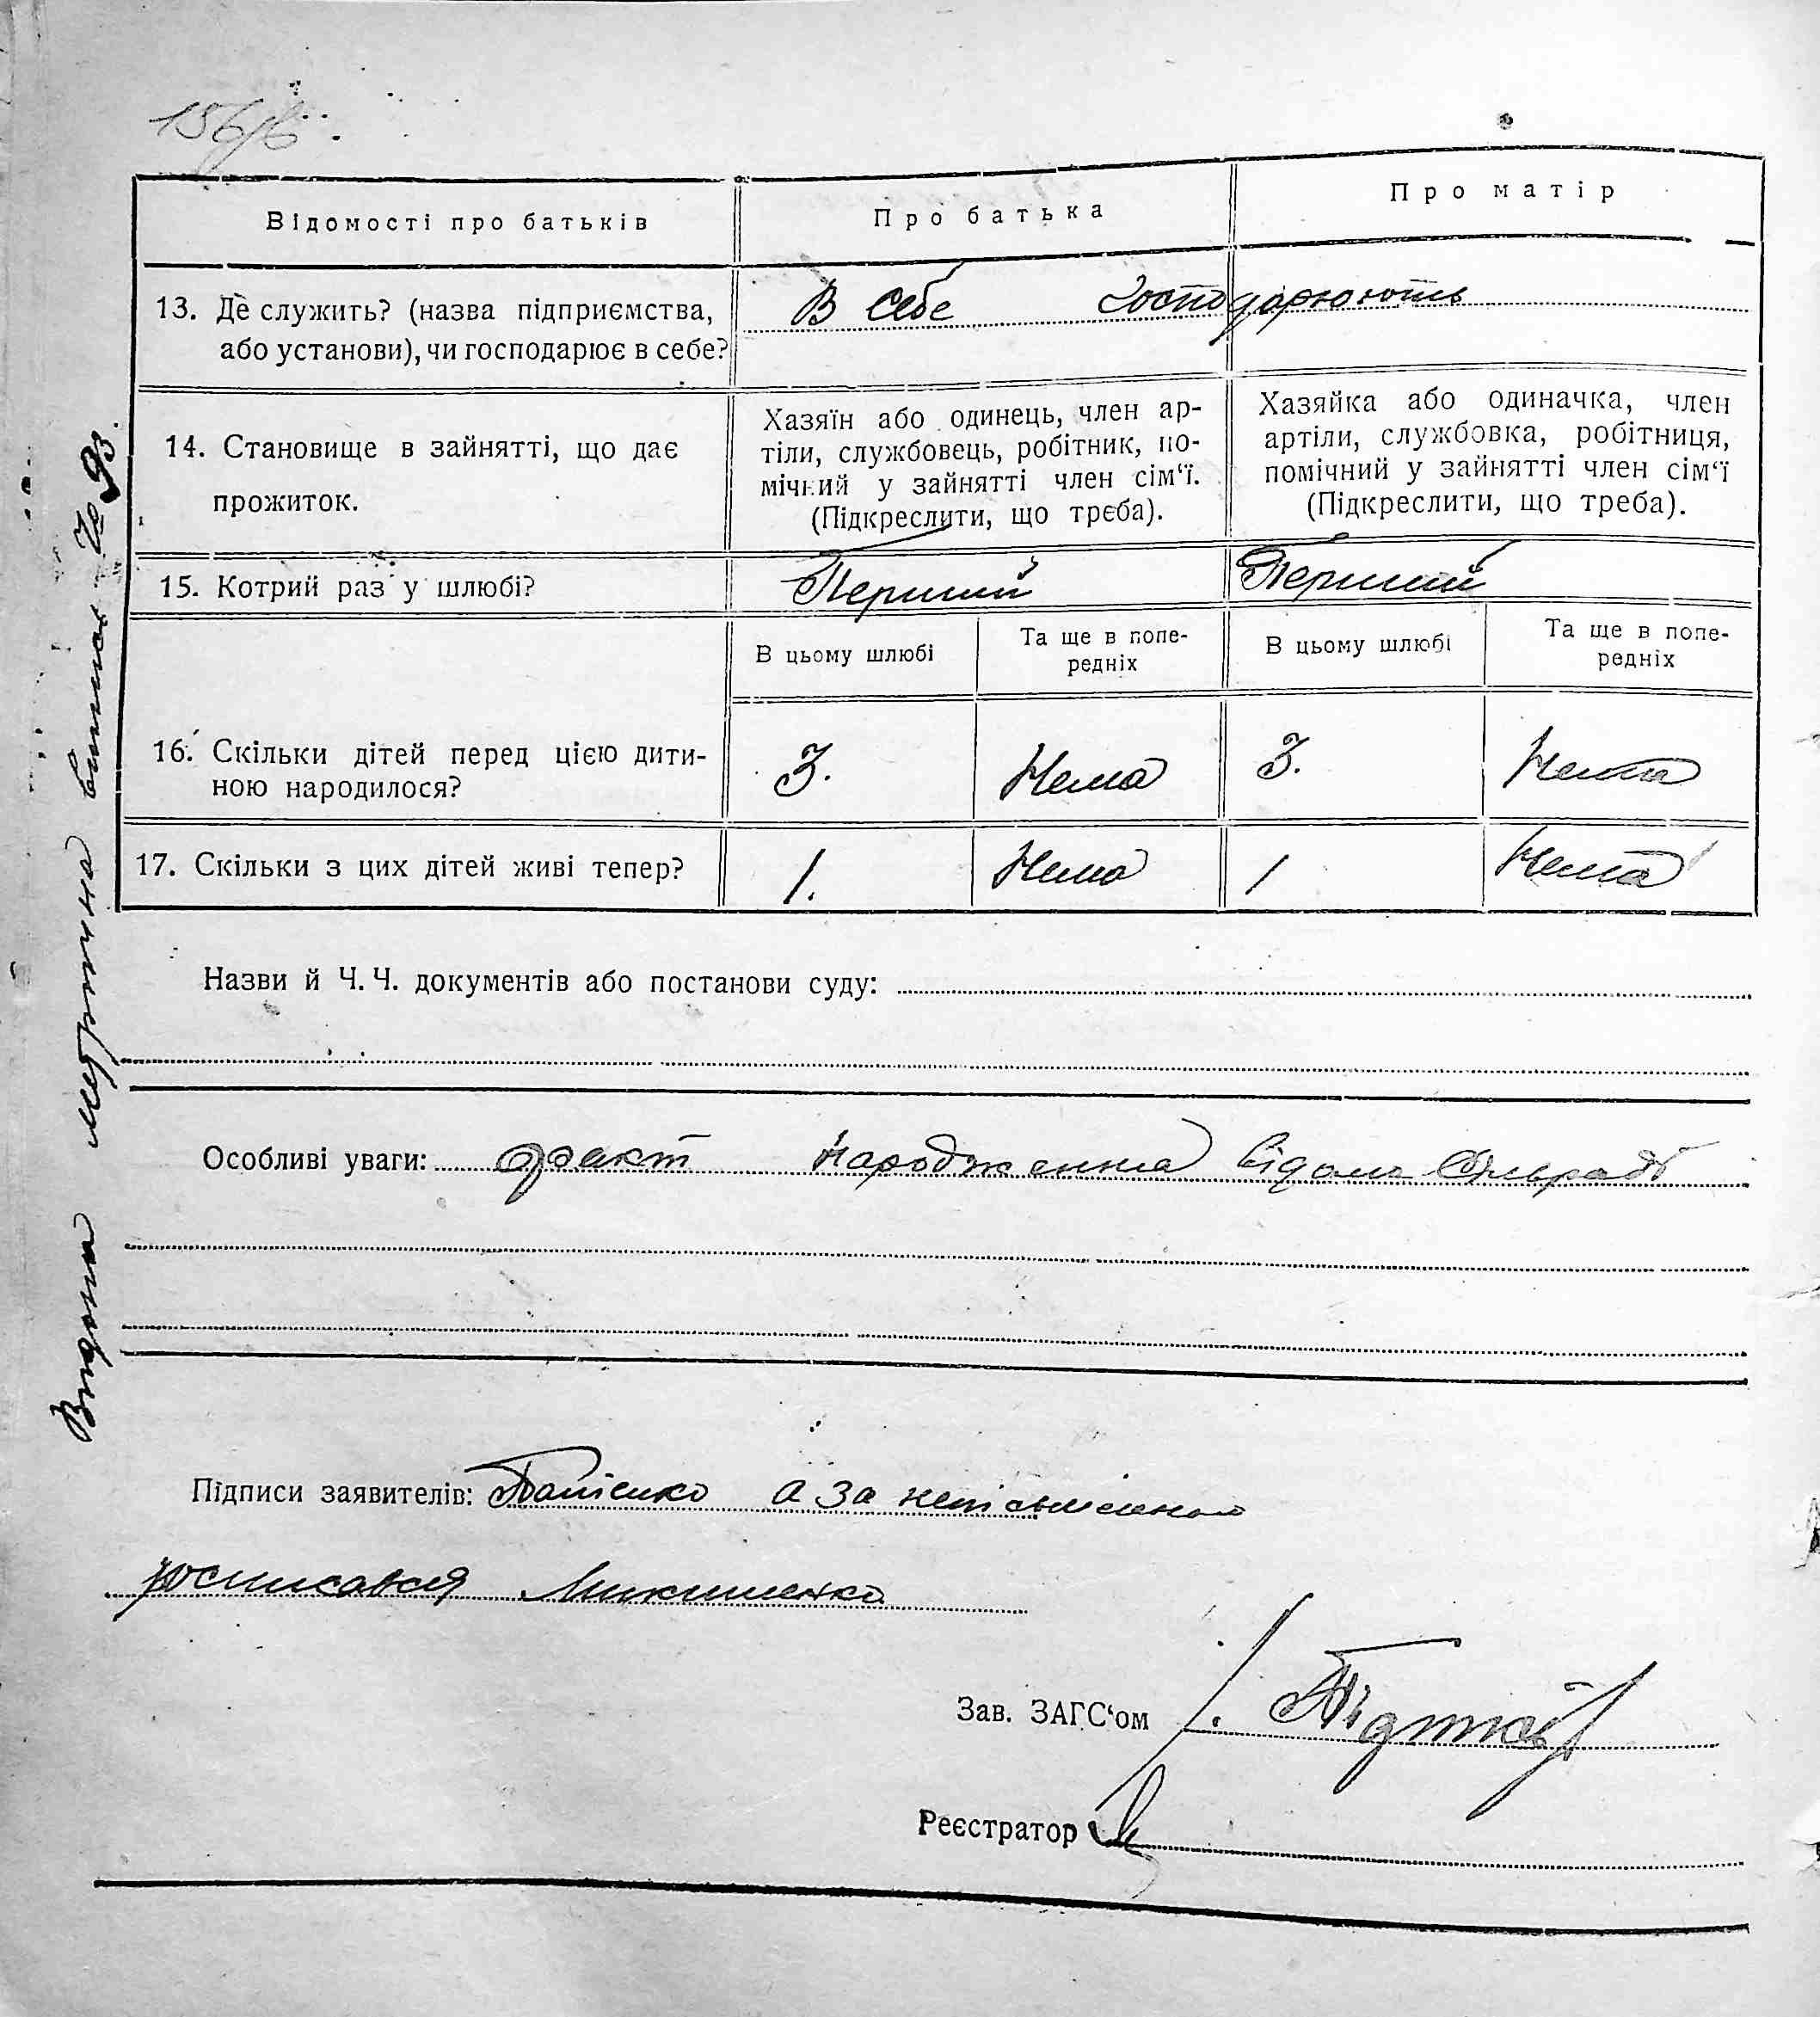 Відомості про батьків
Про батька
Про матір
13. Де служить? (назва підприємства,
або установи), чи господарює в себе?
В себе господарюють
14. Становище в зайнятті, що дає
прожиток.
Хазяїн або одинець, член ар-
тіли, службовець, робітник, по-
мічний у зайнятті член сім‘ї.
(Підкреслити, що треба).
Хазяйка або одиначка, член
артіли, службовка, робітниця,
помічний у зайнятті член сім‘ї
(Підкреслити, що треба).
15. Котрий раз у шлюбі?
Перший
Перший
В цьому шлюбі
Та ще в попе-
редніх
В цьому шлюбі
Та ще в попе-
редніх
16. Скільки дітей перед цією дити-
ною народилося?
3.
Нема
3.
Нема
17. Скільки з цих дітей живі тепер?
1.
Нема
1
Нема
Назви й Ч. Ч. документів або постанови суду:
Особливі уваги: факт народження відомо сільраді
Підписи заявителів: а за неписьменного
росписався Микитенко
Зав. ЗАГС‘ом
Реєстратор
Видана метрична випись № 93.